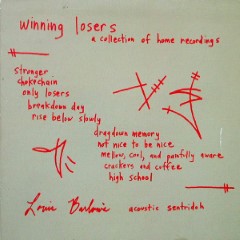 winning losers
a collection of home recordings
stronger
chokechain
only losers
breakdown day
rise below slowly
dragdown memory
not nice to be nice
mellow, cool, and painfully aware
crackers and coffee
high school
Louie Barlowe acoustic sentridoh